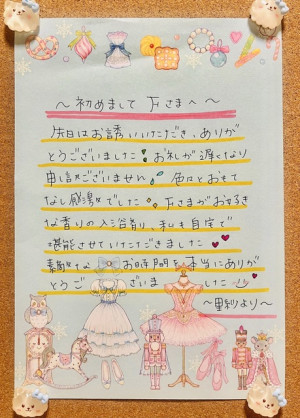 〜初めまして 下さまへ〜
先日はお誘いいただき、ありが
とうございました お礼が遅くなり
申し訳ございません 色々とおもて
なし感激でした 下さまがお好き
な香りの入浴剤、私も自宅で
堪能させていただきました
素敵なお時間を本当にありが
とうございました
〜里紗より〜